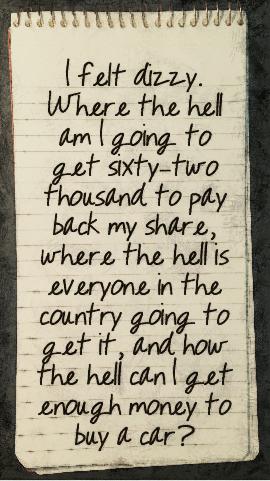 I felt dizzy.
Where the hell
am I going to
get sixty-two
thousand to pay
back my share,
where the hell is
everyone in the
country going to
get it, and how
the hell can I get
enough money to
buy a car?